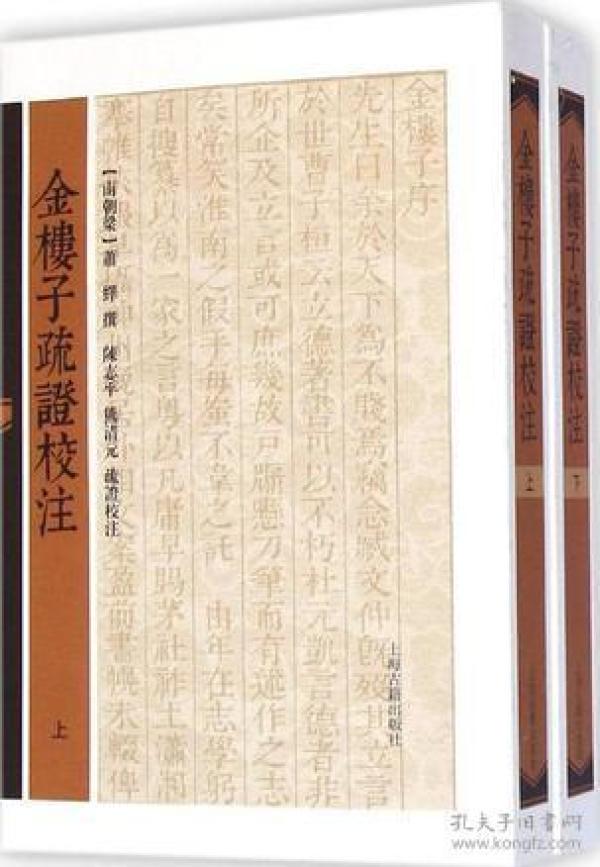 金樓子疏證校注
上
【南朝梁】蕭繹 撰 陳志平 熊清元 疏證校注
金樓子序
先生曰余於天下為不賤焉竊念臧文仲旣歿其立言
於世曹子桓云立德著書可以不朽杜元凱言德者非
所企及立言或可庶幾故戶牖懸刀筆而有述作之志
矣常笑淮南之假手每蚩不韋之託 由年在志學躬
自搜纂以為一家之言粵以凡庸早賜茅社祚土瀟湘
上海古籍出版社
金樓子疏證校注
上
金樓子疏證校注
下
孔夫子旧书网
www.kongfz.com